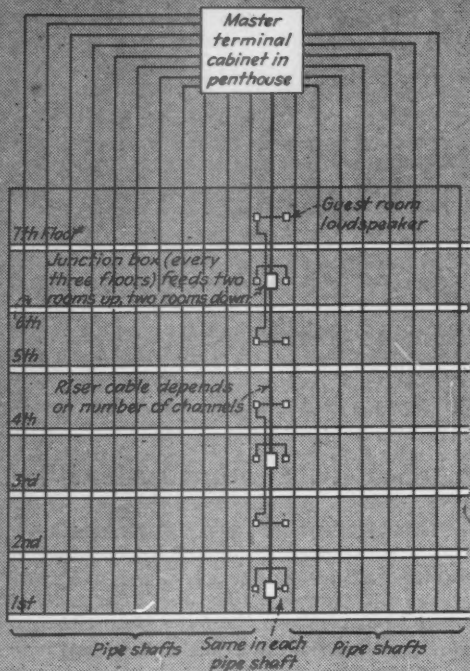 Master
terminal
cabinet in
penthouse
Guest room
loudspeaker
7th Floor
Junction box (every
three floors) feeds two
rooms up, two rooms down
6th
5th
Riser cable depends
on number of channels
4th
3rd
2nd
1st
Pipe shafts
Same in each
pipe shaft
Pipe shafts